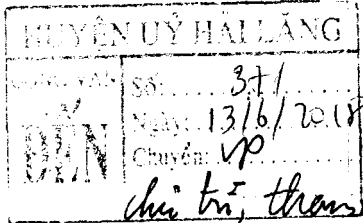 HUYỆN UỶ HẢI LĂNG
CÔNG VĂN
ĐẾN
Số: 371
Ngày: 13/6/2018
Chuyển: VP
chủ trì, tham